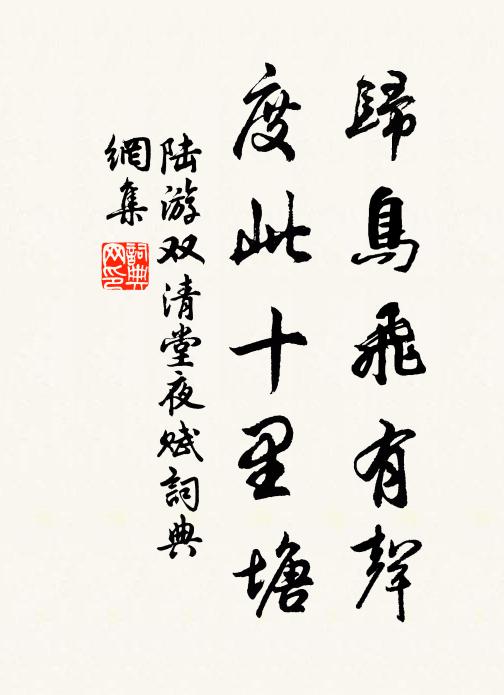 歸鳥飛有聲
度此十里塘
陆游双清堂夜赋詞典
網集
詞典
网印